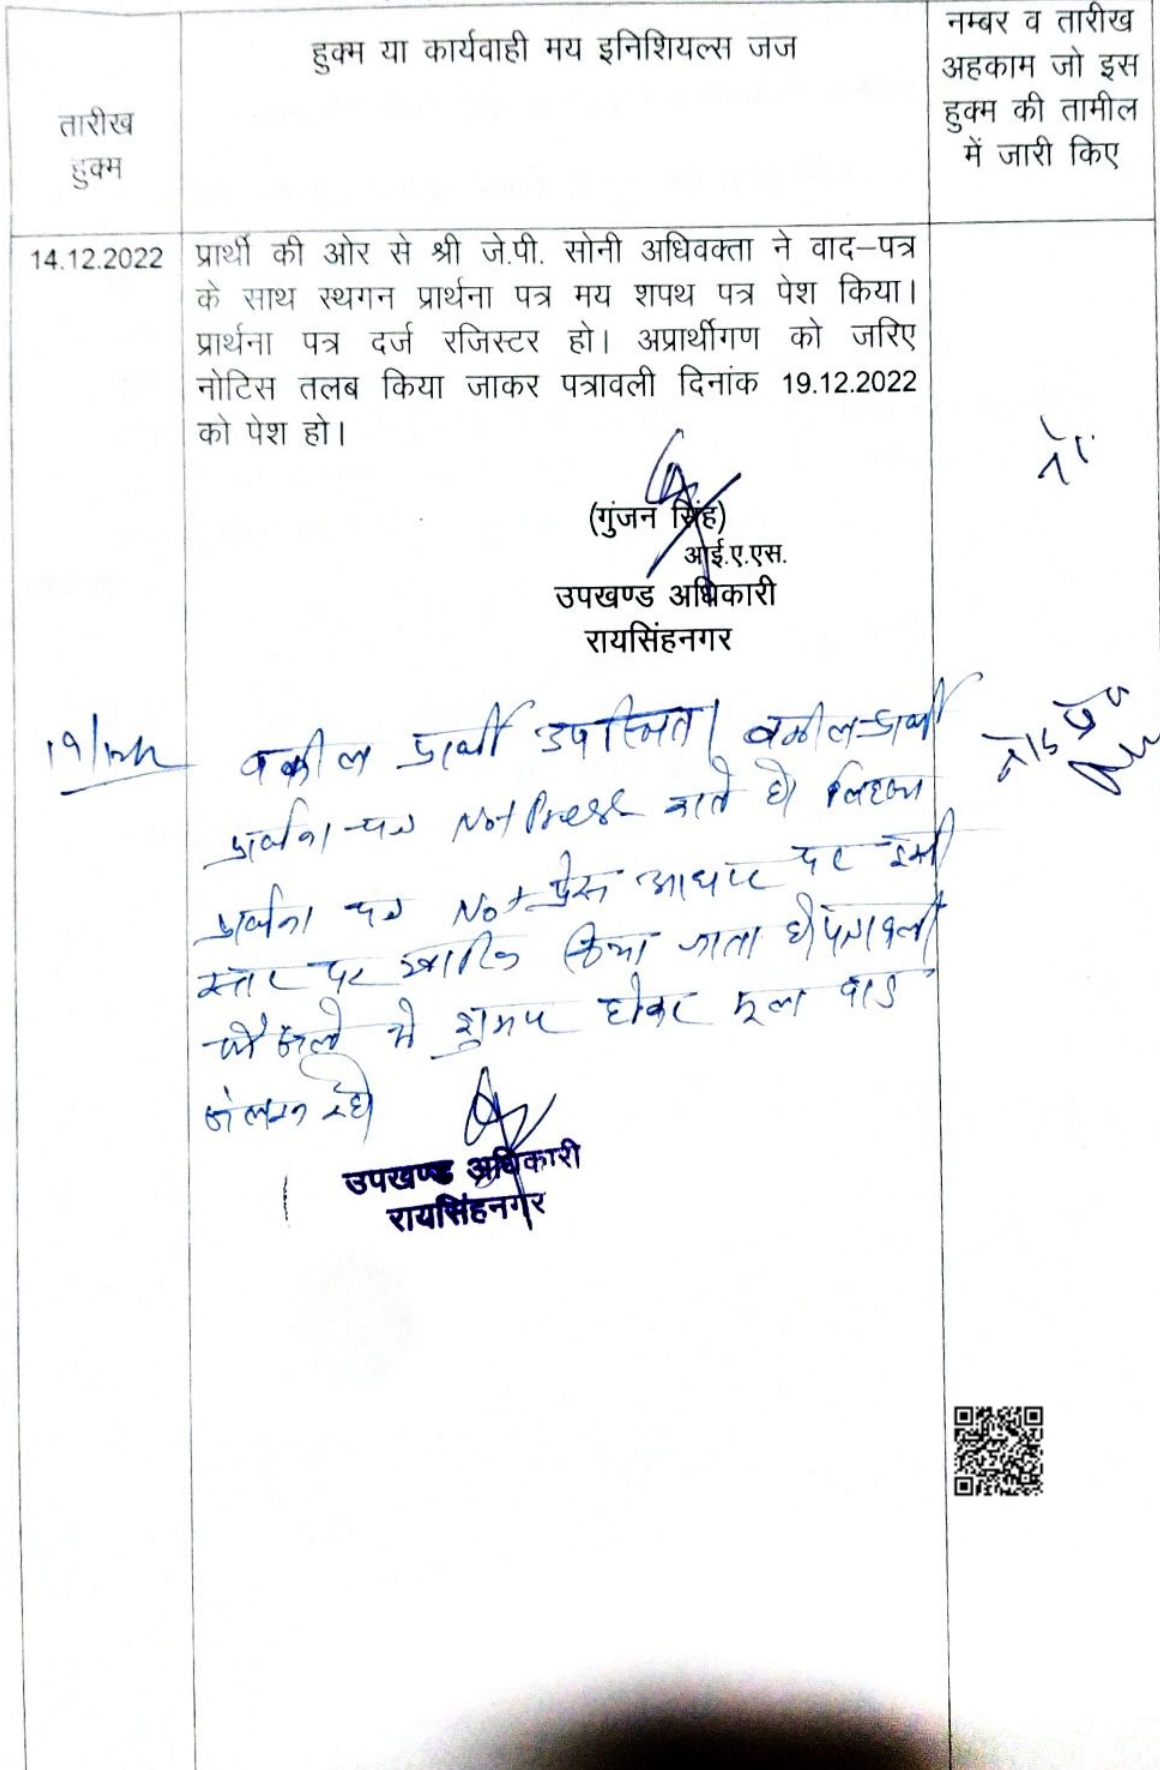 तारीख
हुक्म
हुक्म या कार्यवाही मय इनिशियल्स जज
नम्बर व तारीख
अहकाम जो इस
हुक्म की तामील
में जारी किए
14.12.2022
प्रार्थी की ओर से श्री जे.पी. सोनी अधिवक्ता ने वाद–पत्र
के साथ स्थगन प्रार्थना पत्र मय शपथ पत्र पेश किया।
प्रार्थना पत्र दर्ज रजिस्टर हो। अप्रार्थीगण को जरिए
नोटिस तलब किया जाकर पत्रावली दिनांक 19.12.2022
को पेश हो।
(गुंजन सिंह)
आई.ए.एस.
उपखण्ड अधिकारी
रायसिंहनगर
वकील प्रार्थी उपस्थित। वकील प्रार्थी
प्रार्थना पत्र Not Press है।
प्रार्थना पत्र Not प्रेस आधार पर इसी
स्तर पर खारिज किया जाता है। पत्रावली
शुमार होकर मूल वाद
संलग्न रहे।
उपखण्ड अधिकारी
रायसिंहनगर